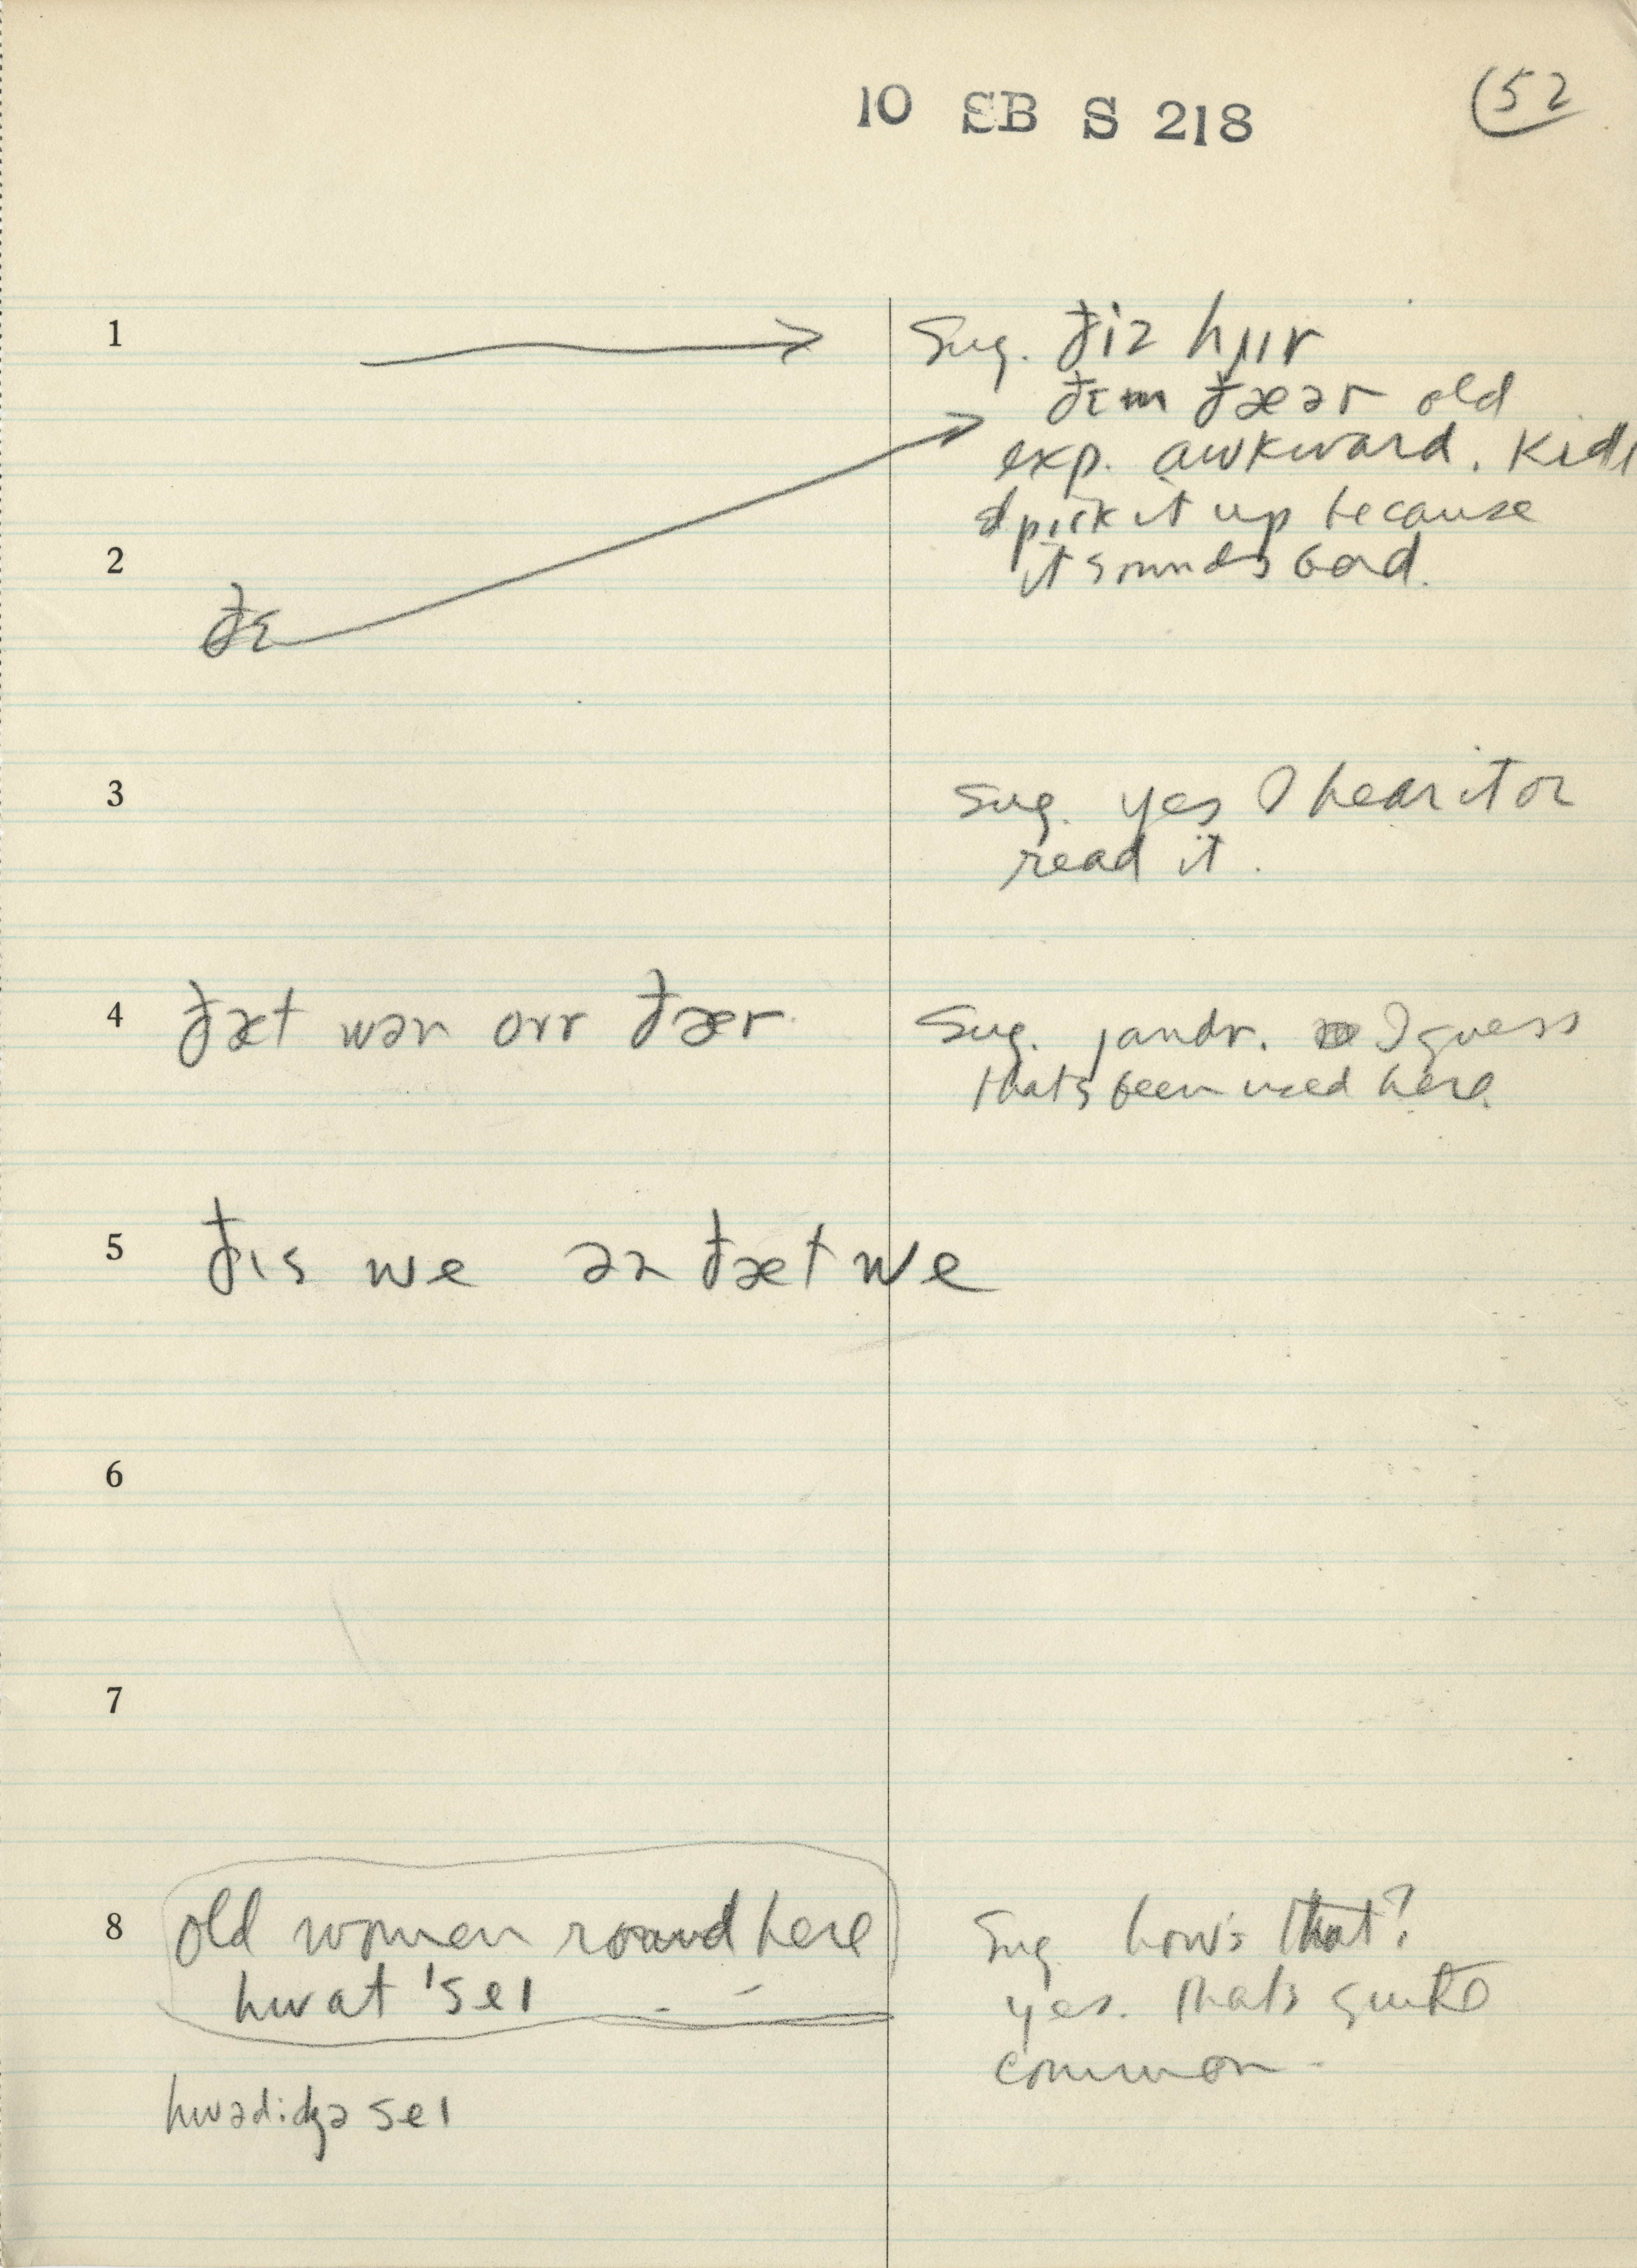 10 SB S 218
52
1
Sug. ðiz hɪɪr
ðɛm ðæər old
exp. awkward. Kids
d pick it up because
2
it sounds bad.
ðɛ
3
Sug. yes I hear it or
read it.
4 ðæt wən ovr ðær
Sug. jandr. I guess
that's been used here.
5 ðɪs we ən ðæt we
6
7
8 old women round here
hwat 'seɪ
Sug how's that?
yes. that's quite
common-
hwədidʒə seɪ